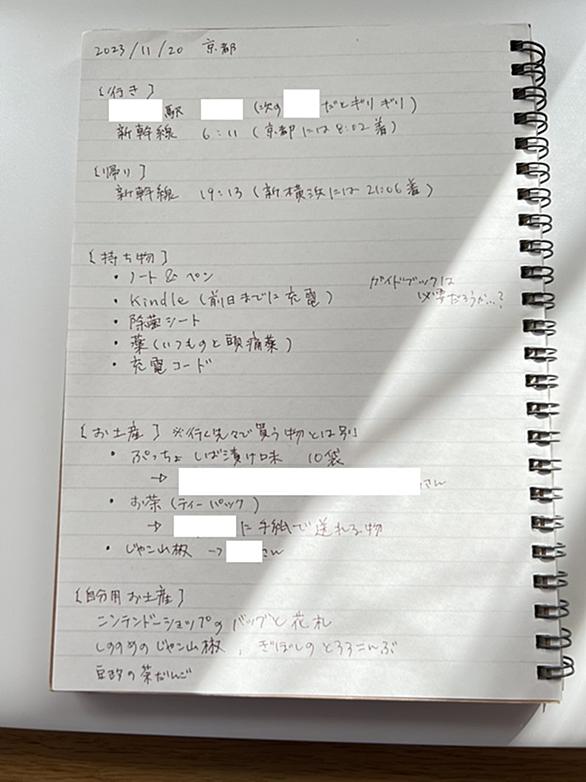 2023/11/20 京都
[行き]
駅 (次の だとギリギリ)
新幹線 6:11 (京都には8:02着)
[帰り]
新幹線 19:13 (新横浜には21:06着)
[持ち物]
・ノート&ペン
・Kindle (前日までに充電) ガイドブックは
必要だろうか…?
・除菌シート
・薬(いつものと頭痛薬)
・充電コード
[お土産] ※行く先々で買う物とは別
・ぷっちょ しば漬け味 10袋
→ さん
・お茶(ティーパック)
→ に手紙で送れる物
・じゃこ山椒 → さん
[自分用お土産]
ニンテンドーショップのバッグと花札
しののめのじゃこ山椒, ぎぼしのとろろこんぶ
豆政の茶だんご